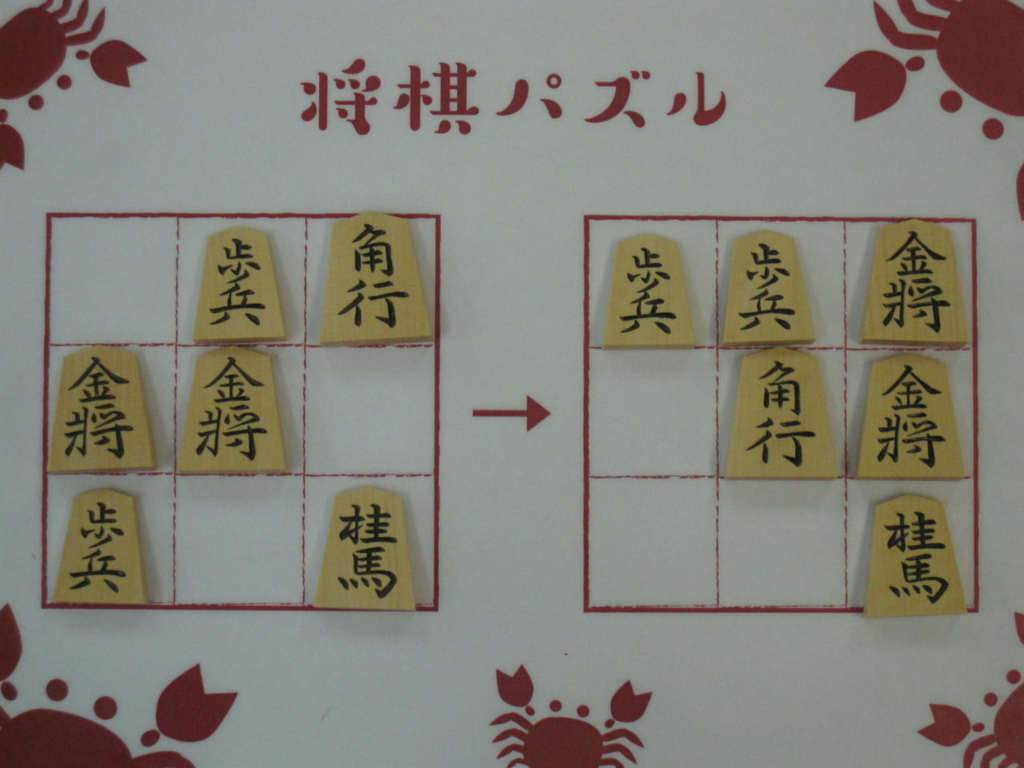 将棋パズル
歩兵 角行 歩兵 歩兵 金将
金将 金将 角行 金将
歩兵 桂馬 桂馬